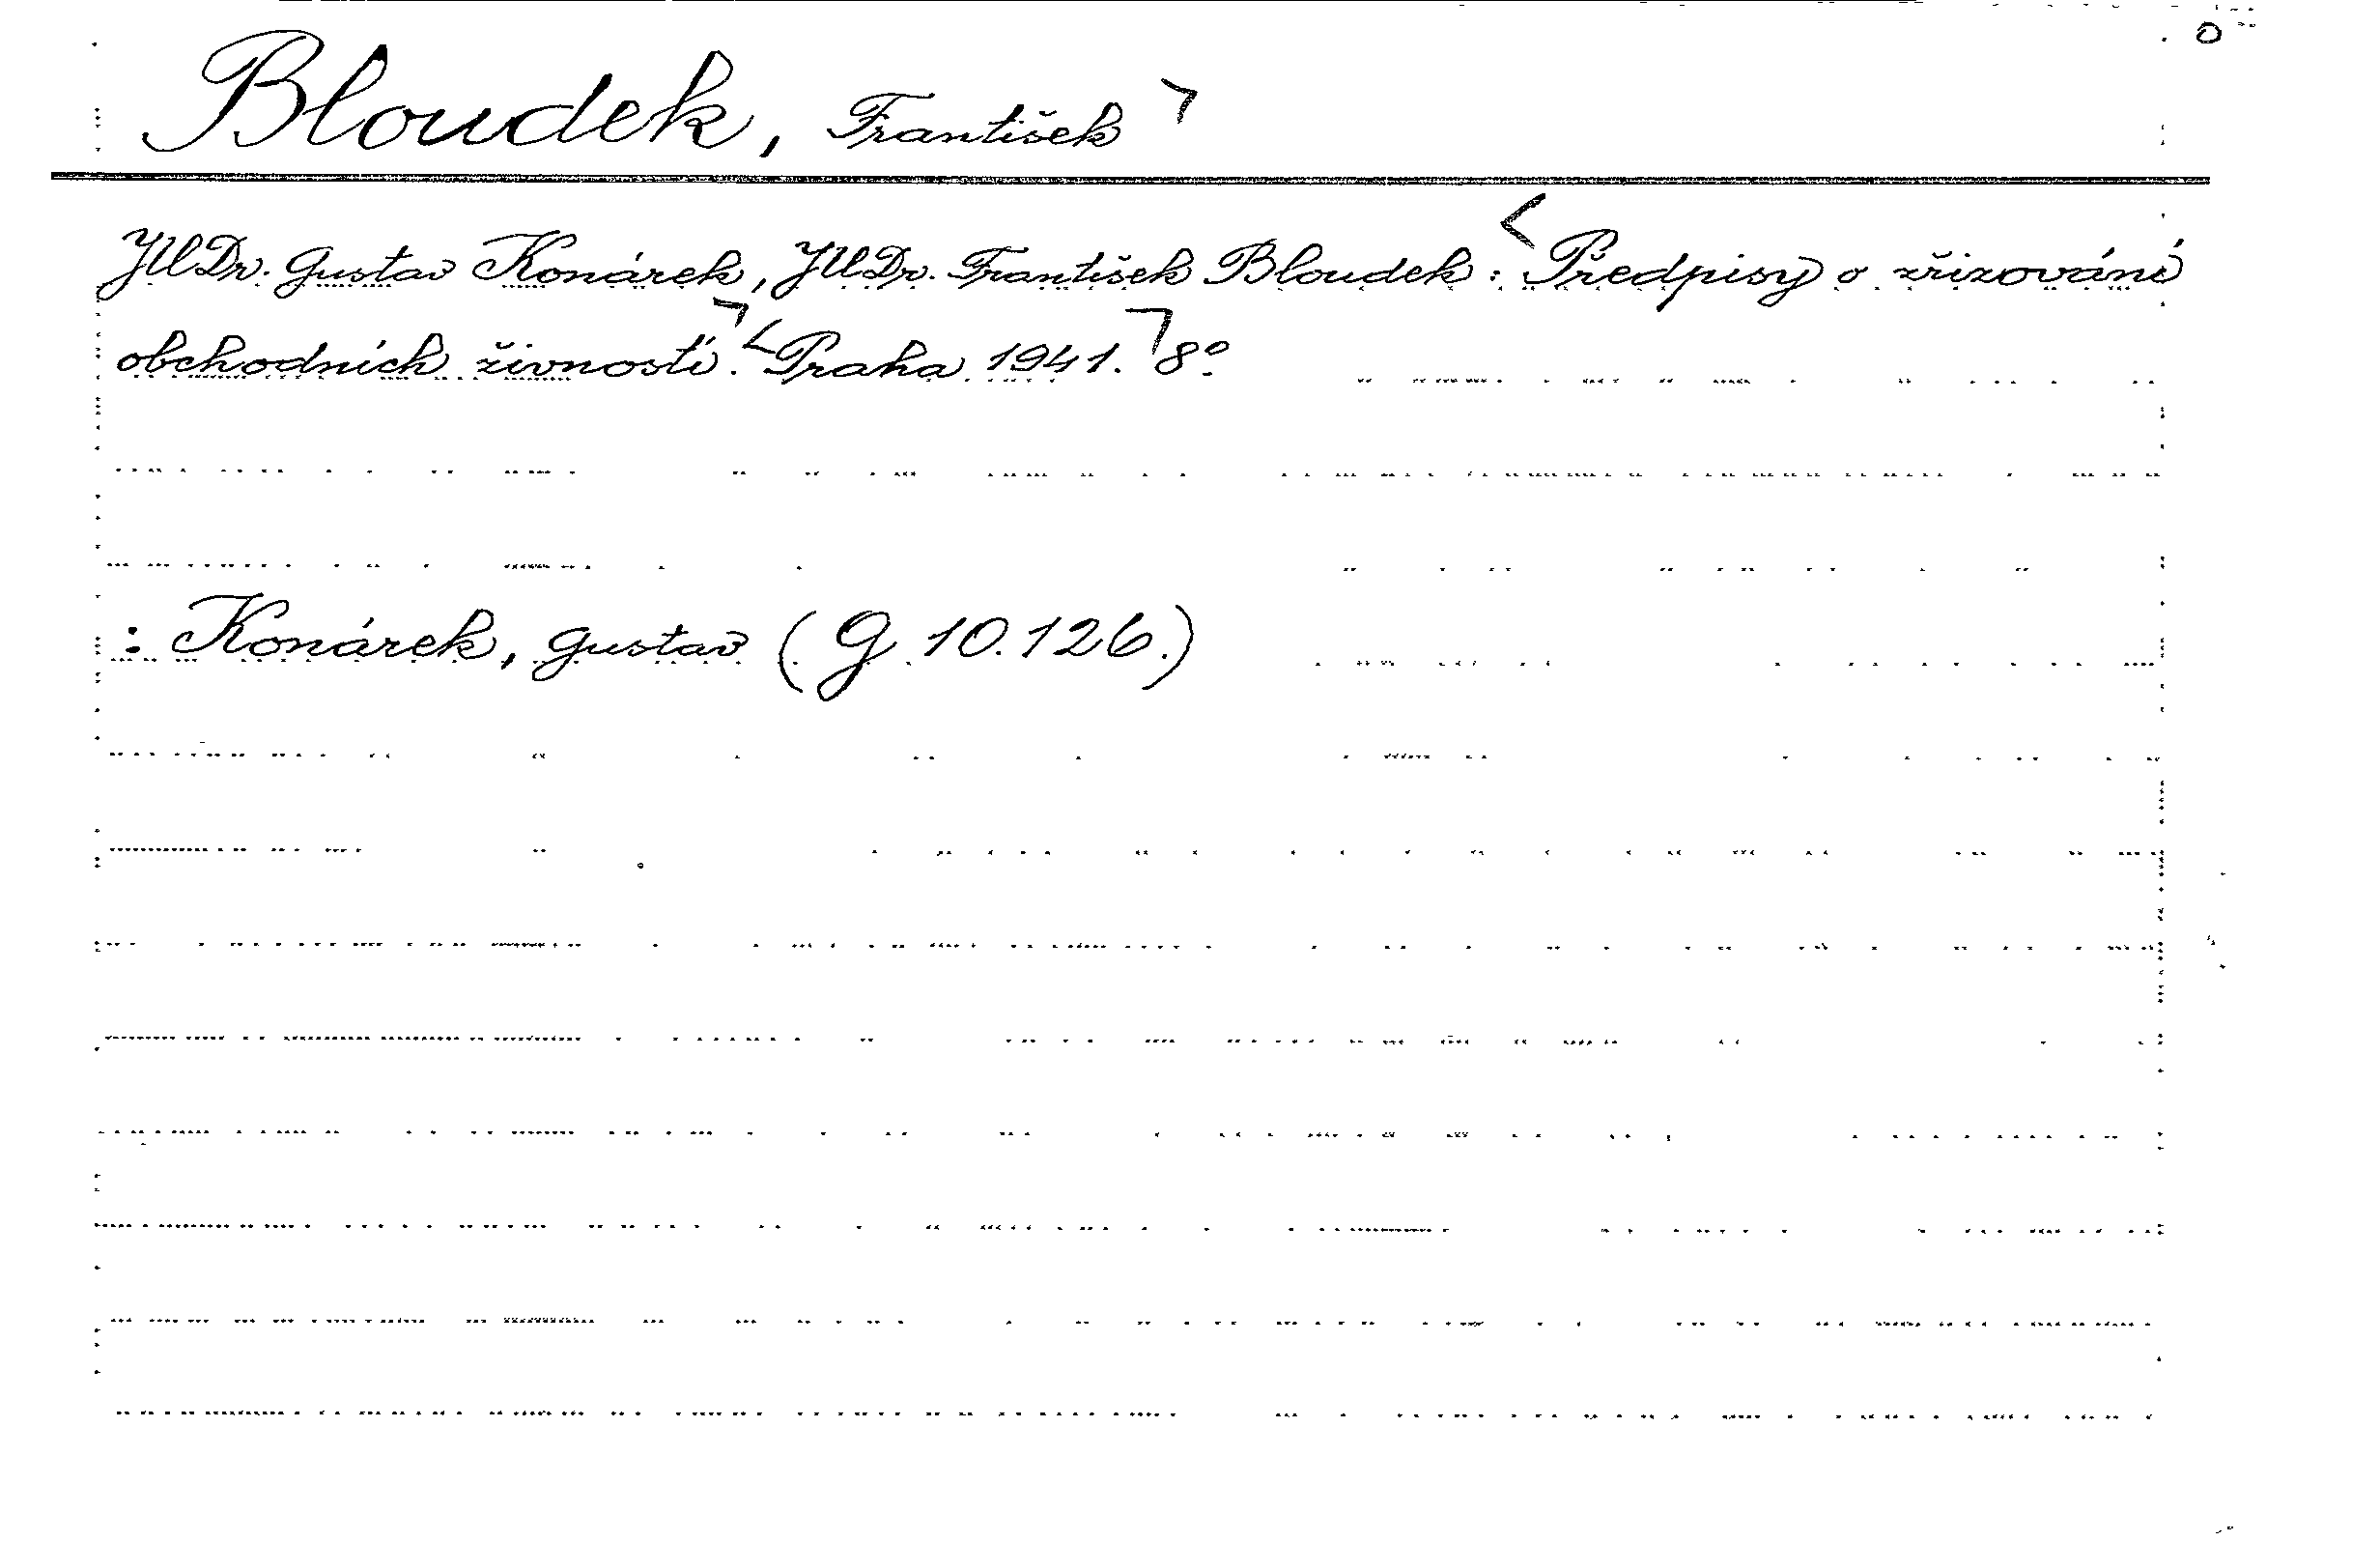 Bloudek, František
JUDr. Gustav Konárek, JUDr. František Bloudek: Předpisy o zřizování
obchodních živností. Praha 1941. 8°.
: Konárek, Gustav (G 10.126.)